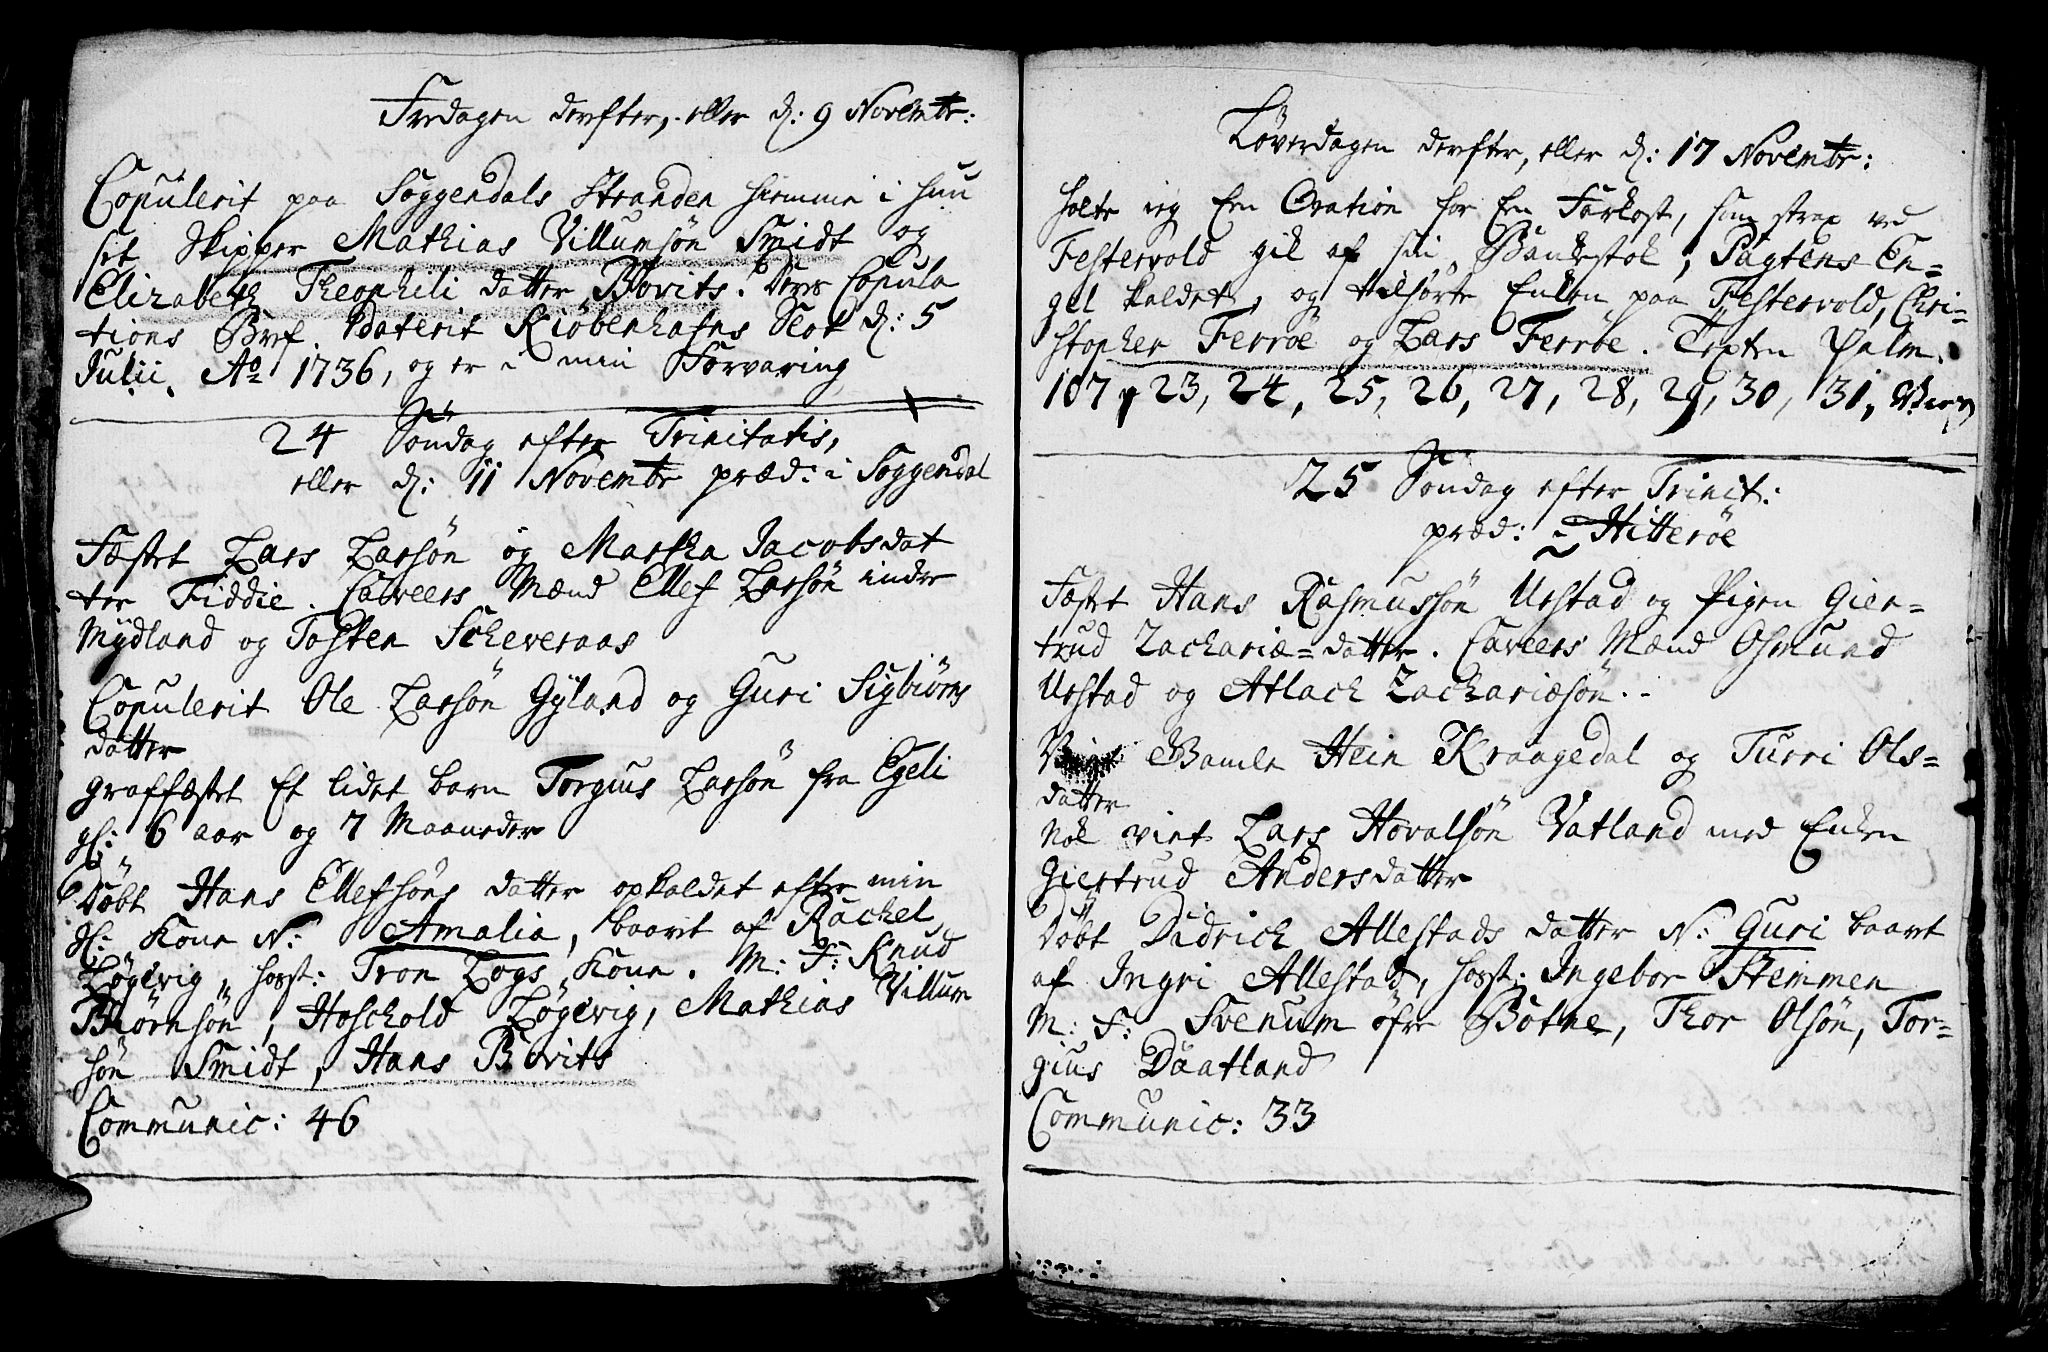 Fredagen derefter, eller d: 9 Novembr:
Copulerit paa Soggendals Stranden hiemme i huu
set Skipper Mathias Villumsøn Smidt og
Elizabeth Theophili datter Bovits. Ders Copula
tions Bref daterit Kiøbenhafns Slot d: 5
Julii Ao 1736, og er i min Forvaring
24 Søndag efter Trinitatis,
eller d: 11 Novembr præd: i Soggendal
Fæstet Lars Larsøn og Martha Jacobsdat
ter Fiddie. Caveers Mænd Ellef Larsøn indre
Mydland og Tosten Scheveraas
Copulerit Ole Larsøn Gyland og Guri Sigbiørns
datter
graffæstet Et lidet barn Torgius Larsøn fra Egeli
gl: 6 aar og 7 Maaneder
Døbt Hans Ellefsøns datter opkaldet efter min
Sl: Kone N: Amalia, baaret af Rachel
Løgevig, hosst: Tron Logs Kone. M: F: Knud
Biørnsøn, Hoschold Løgevig, Mathias Villum
søn Smidt, Hans Bovits
Communic: 46
Løverdagen derefter, eller d: 17 Novembr:
holte ieg Een Oration for Een Farkost, som strax ved
Festervold gik af sin Bankestok, Pagtens En=
gel kaldet, og tilhørte Enken paa Festervold, Chri=
stopher Ferrøe og Lars Ferrøe. Texten Psalm.
107 v 23, 24, 25, 26, 27, 28, 29, 30, 31,
25 Søndag efter Trinit:
præd: i Hitterøe
Fæstet Hans Rasmussøn Urstad og Pigen Gier=
trud Zachariæ=datter. Caveers Mænd Osmund
Urstad og Atlach Zachariæsøn.
Viet Gamle Hein Kraagedal og Turri Ols=
datter
Nok viet Lars Hovalsøn Vatland med Enken
Giertrud Andersdatter
Døbt Didrich Allestads datter N: Guri baaret
af Ingri Allestad, hosst: Ingebor Stemmen
M: F: Svenum øfre Botne, Thor Olsøn, Tor=
gius Daatland
Communic: 33